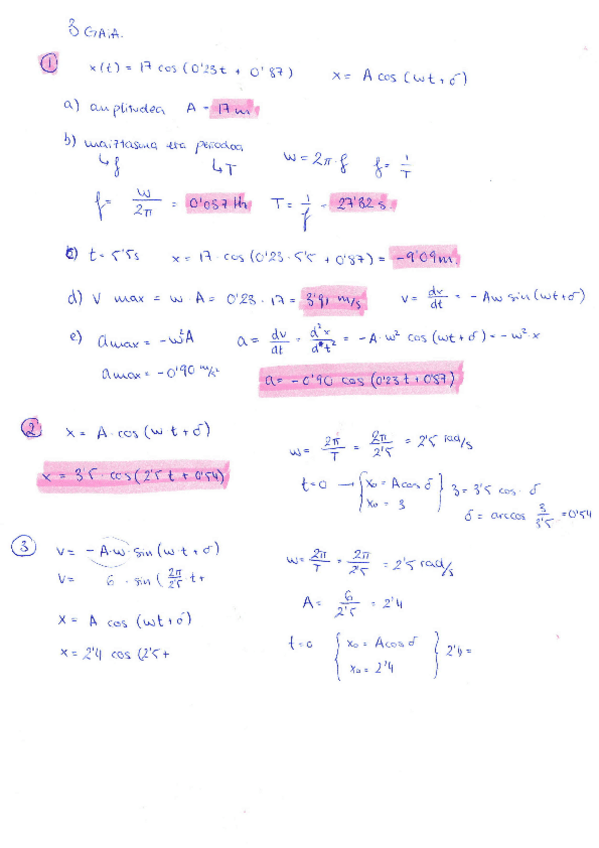 3 G.A.A.
① x(t) = 17 cos (0'23t + 0'87) x = A cos (wt + δ)
a) anplitudea A = 17 m.
b) maiztasuna eta periodoa w = 2π · f f = 1/T
↳ f ↳ T
f = w/2π = 0'037 Hz T = 1/f = 27'32 s.
c) t = 5'5s x = 17 · cos (0'23 · 5'5 + 0'87) = -9'09 m.
d) V max = w · A = 0'23 · 17 = 3'91 m/s v = dx/dt = -Aw sin (wt + δ)
e) amax = -w²A a = dv/dt = d²x/dt² = -A · w² cos (wt + δ) = -w² · x
amax = -0'90 m/s² a = -0'90 cos (0'23t + 0'87)
② x = A · cos (w t + δ) w = 2π/T = 2π/2'5 = 2'5 rad/s
x = 3'5 · cos (2'5 t + 0'54) t=0 → { x₀ = A cos δ x₀ = 3 } 3 = 3'5 cos · δ
δ = arccos 3/3'5 = 0'54
③ v = -A·w·sin (w·t + δ) w = 2π/T = 2π/2'5 = 2'5 rad/s
v = 6 · sin (2π/2'5 · t +
A = 6/2'5 = 2'4
x = A cos (wt + δ) t=0 { x₀ = A cos δ x₀ = 2'4 } 2'4 =
x = 2'4 cos (2'5 +